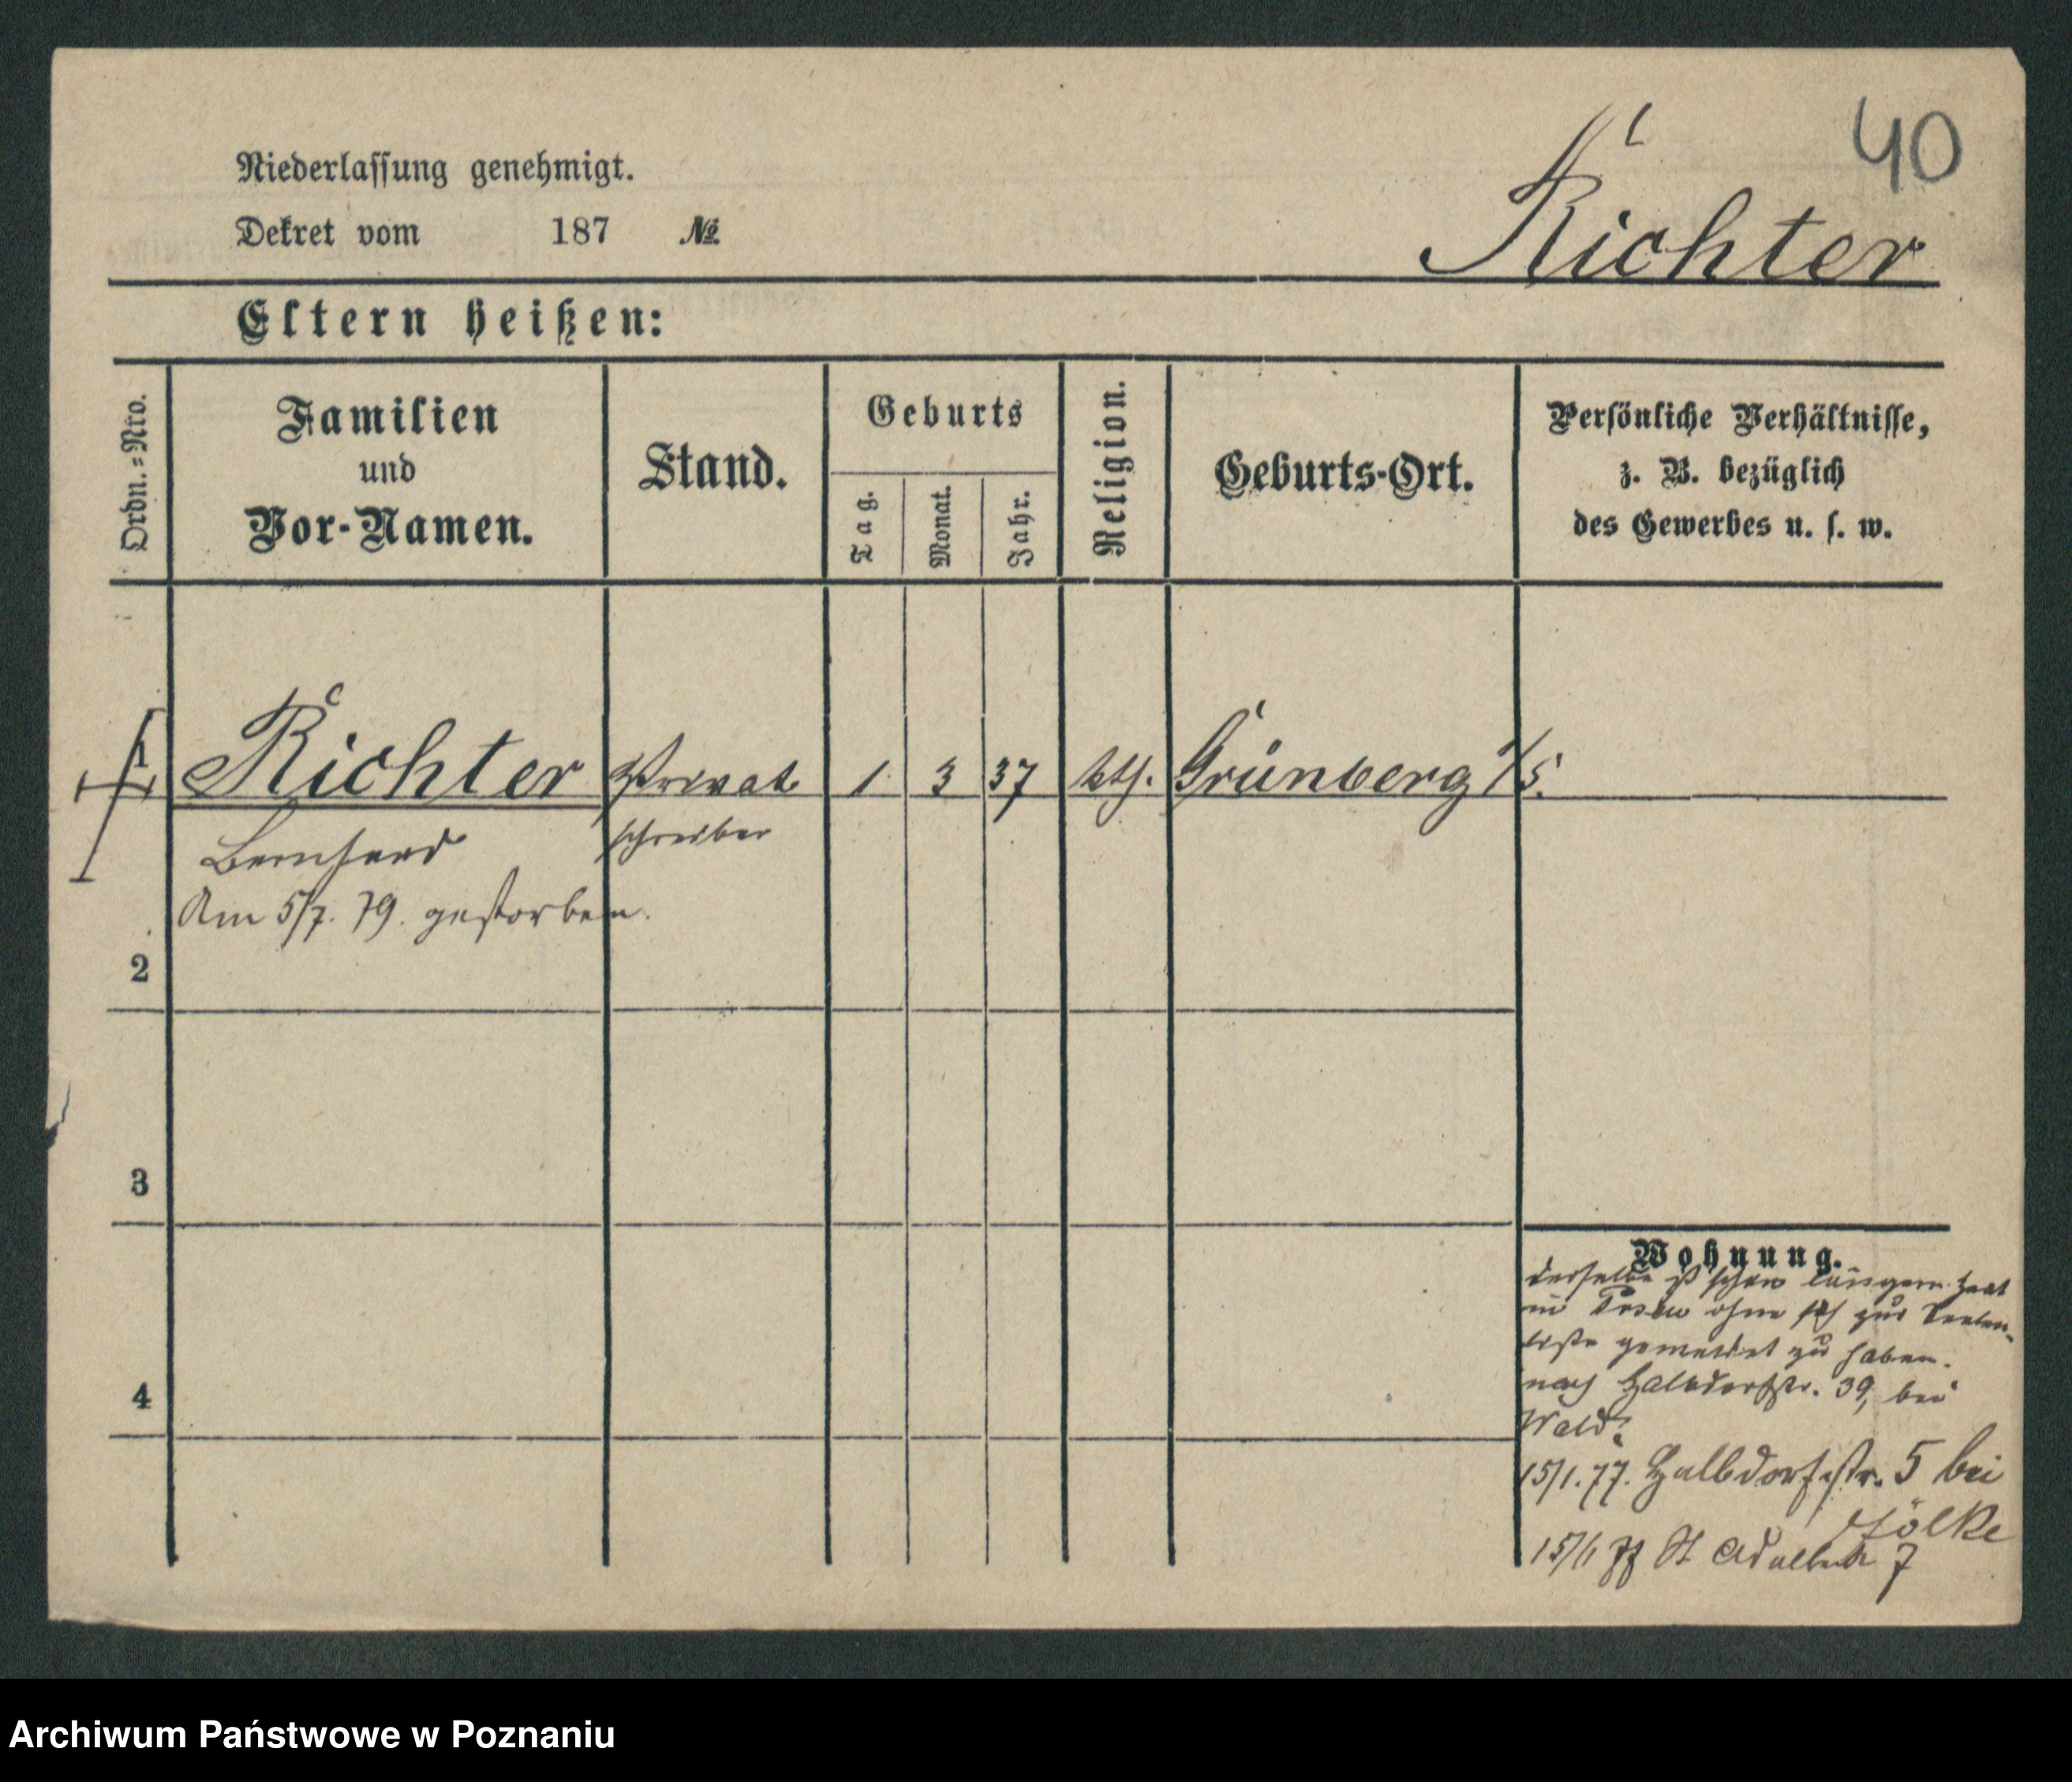 40
Niederlassung genehmigt.
Dekret vom 187 №
Richter
Eltern heißen:
Ordn.=Nro.
Familien
und
Vor-Namen.
Stand.
Geburts
Tag.
Monat.
Jahr.
Religion.
Geburts-Ort.
Persönliche Verhältnisse,
z. B. bezüglich
des Gewerbes u. s. w.
1 Richter Privat 1 3 37 kth. Grünberg i/S.
Bernhard schreiber
Am 5/7. 79. gestorben.
2
3
4
Wohnung.
derselbe ist schon längere Zeit
in Posen ohne sich zur Seelen-
liste gemeldet zu haben.
nach Halbdorfstr. 39, bei
Wald
15/1. 77. Halbdorfstr. 5 bei
15/1 St Adalbert 7
Archiwum Państwowe w Poznaniu